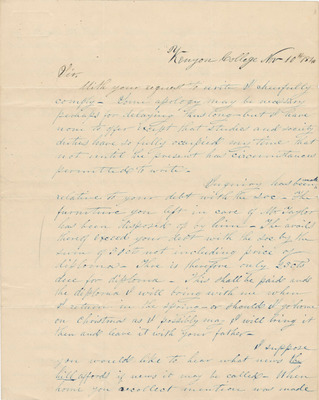 Kenyon College Nov 10th 184
Sir,
With your request to write I cheerfully
comply – Some apology may be necessary
perhaps for delaying thus long but I have
none to offer except that studies and society
duties have so fully occupied my time that
not until the present has circumstances
permitted to write –
Enquiry has been made
relative to your debt with the Soc – The
furniture you left in care of Mr Taylor
has been disposed of by him – The avails
thereof exceed your debt with the Soc by the
sum of not including price of
diploma – There is therefore only
due for diploma – This shall be paid and
the diploma I will bring with me when
I return in the Spring – or should I go home
on Christmas as I possibly may I will bring it
then and leave it with your father –
I suppose
you would like to hear what news
hill affords if news it may be called – When
home you recollect mention was made